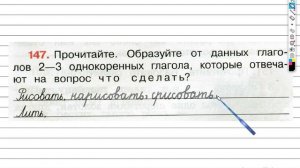 147. Прочитайте. Образуйте от данных глаго-
лов 2—3 однокоренных глагола, которые отвеча-
ют на вопрос что сделать?
Рисовать, нарисовать, срисовать,
Лить,